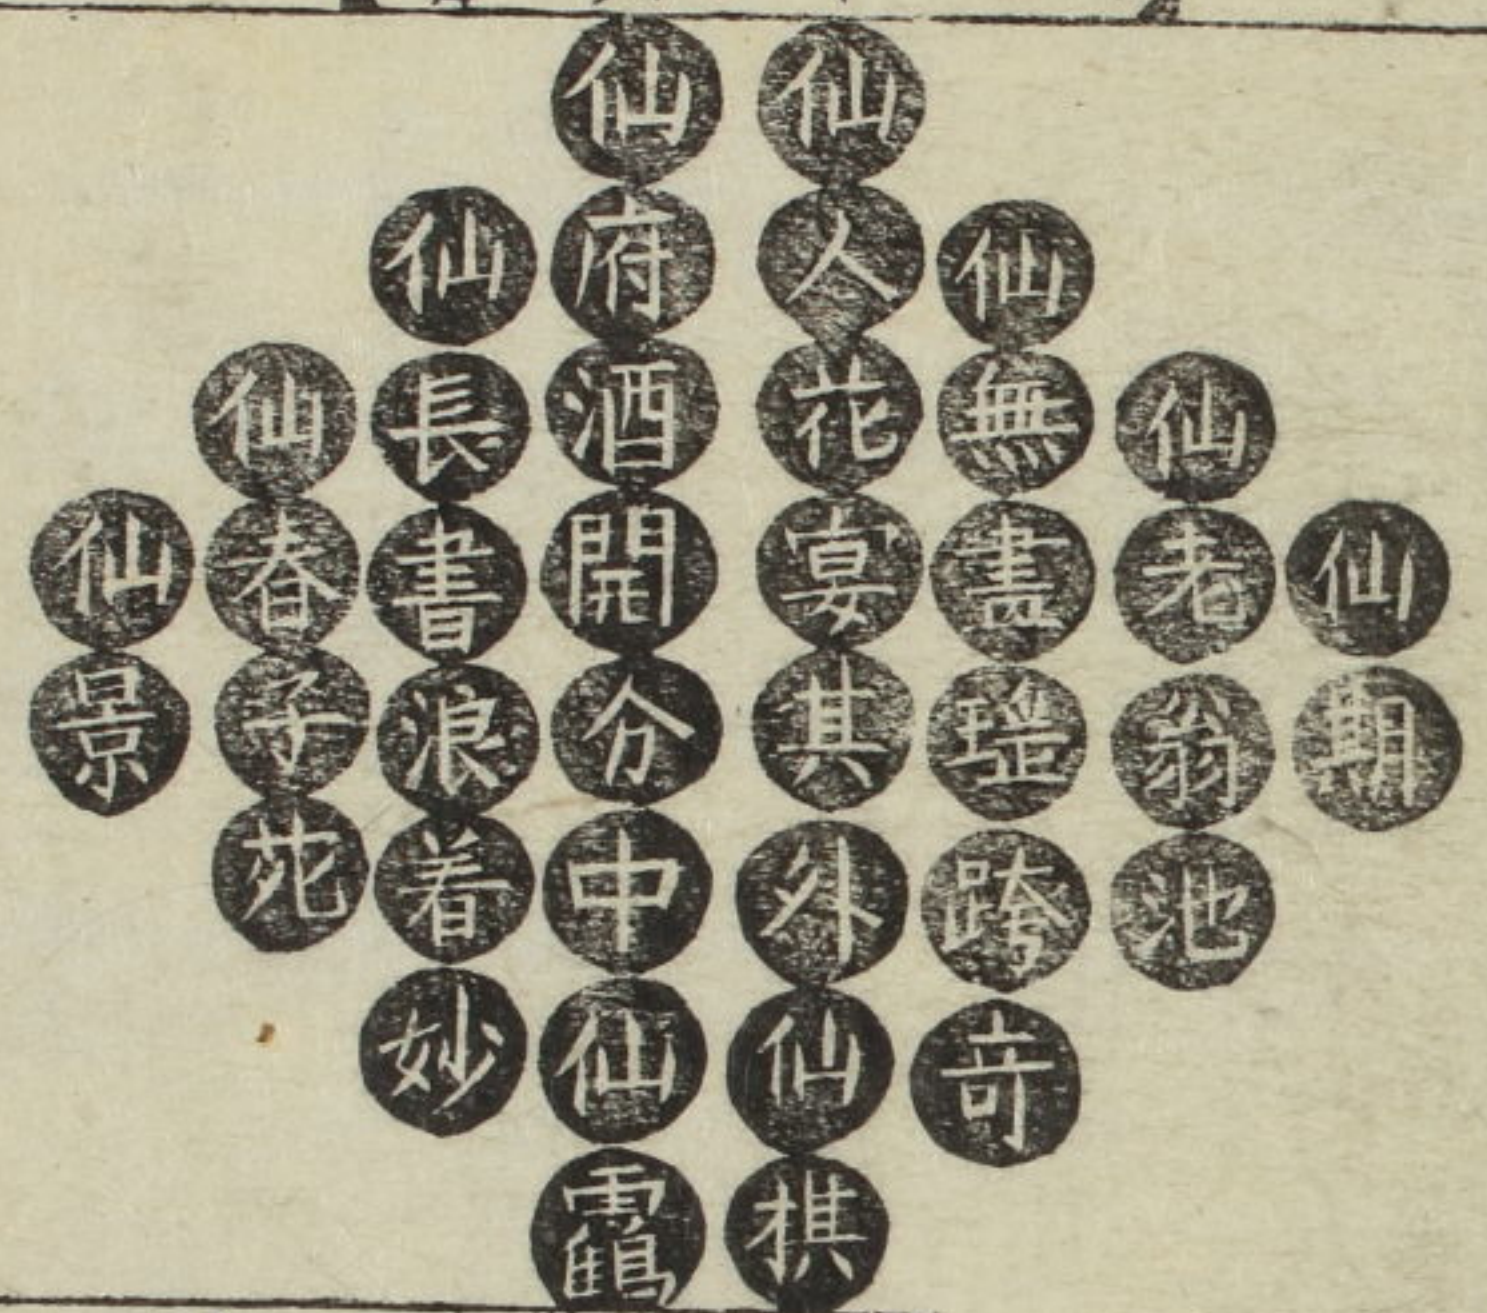 仙期
仙老翁池
仙無畵瑶跨奇
仙人花宴其外仙棋
仙府酒開分中仙鶴
仙長書浪着妙
仙春子苑
仙景